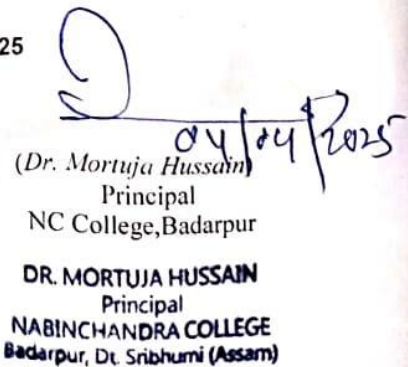 25
04/04/2025
(Dr. Mortuja Hussain)
Principal
NC College,Badarpur
DR. MORTUJA HUSSAIN
Principal
NABINCHANDRA COLLEGE
Badarpur, Dt. Sribhumi (Assam)